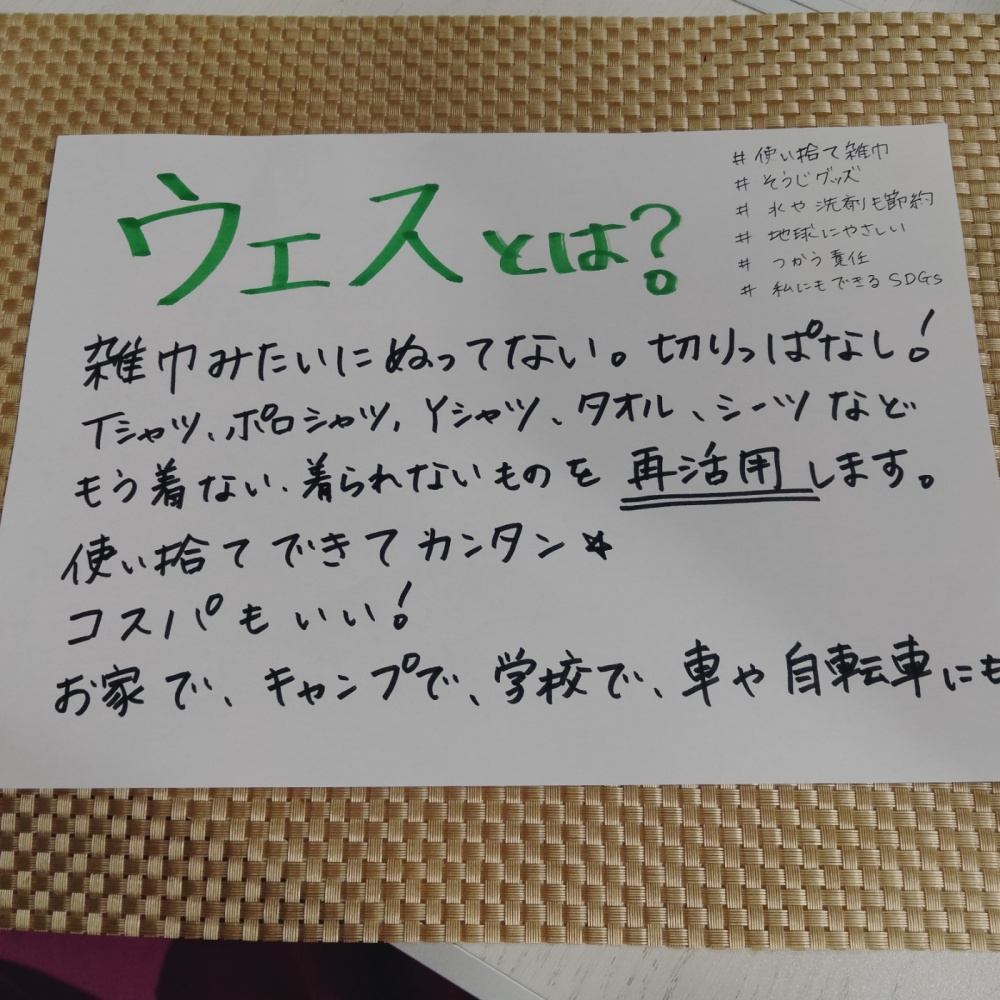 ウエスとは?
# 使い捨て雑巾
# そうじグッズ
# 水や洗剤も節約
# 地球にやさしい
# つかう責任
# 私にもできるSDGs
雑巾みたいにぬってない。切りっぱなし!
Tシャツ、ポロシャツ、Yシャツ、タオル、シーツなど
もう着ない、着られないものを再活用します。
使い捨てできてカンタン☆
コスパもいい!
お家で、キャンプで、学校で、車や自転車にも